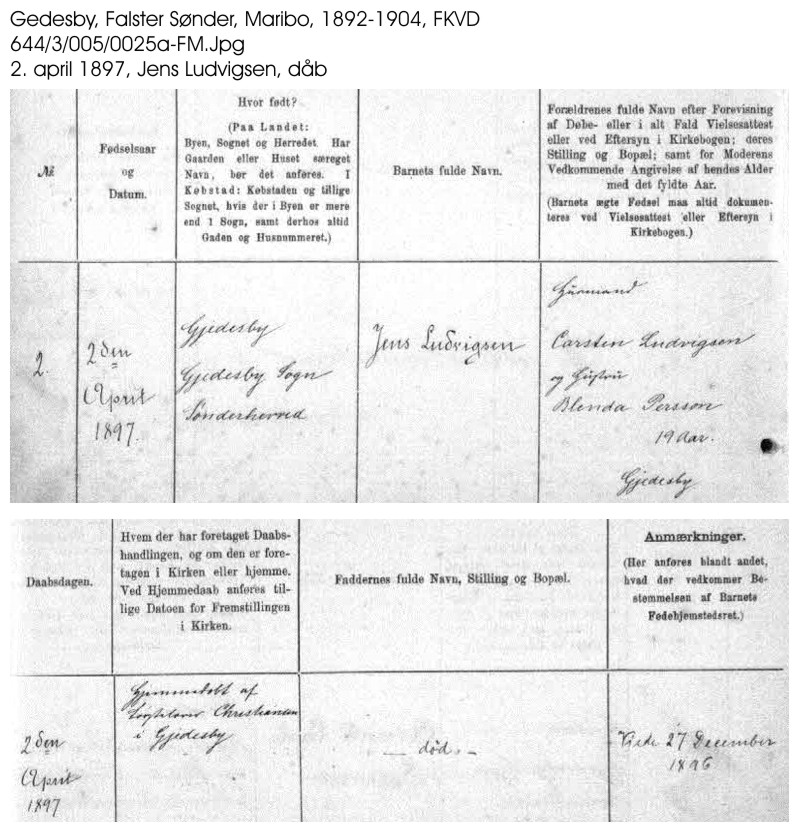 Gedesby, Falster Sønder, Maribo, 1892-1904, FKVD
644/3/005/0025a-FM.Jpg
2. april 1897, Jens Ludvigsen, dåb
№
Fødselsaar
og
Datum.
Hvor født?
(Paa Landet:
Byen, Sognet og Herredet. Har
Gaarden eller Huset særeget
Navn, bør det anføres. I
Købstad: Købstaden og tillige
Sognet, hvis der i Byen er mere
end 1 Sogn, samt derhos altid
Gaden og Husnummeret.)
Barnets fulde Navn.
Forældrenes fulde Navn efter Forevisning
af Døbe- eller i alt Fald Vielsesattest
eller ved Eftersyn i Kirkebogen; deres
Stilling og Bopæl; samt for Moderens
Vedkommende Angivelse af hendes Alder
med det fyldte Aar.
(Barnets ægte Fødsel maa altid dokumen-
teres ved Vielsesattest eller Eftersyn i
Kirkebogen.)
2.
2den
April
1897.
Gjedesby
Gjedesby Sogn
Sønderherred
Jens Ludvigsen
Husmand
Carsten Ludvigsen
og Hustru
Blenda Persson
19 Aar.
Gjedesby
Daabsdagen.
Hvem der har foretaget Daabs-
handlingen, og om den er fore-
tagen i Kirken eller hjemme.
Ved Hjemmedaab anføres til-
lige Datoen for Fremstillingen
i Kirken.
Faddernes fulde Navn, Stilling og Bopæl.
Anmærkninger.
(Her anføres blandt andet,
hvad der vedkommer Be-
stemmelsen af Barnets
Fødehjemstedsret.)
2den
April
1897
Hjemmedøbt af
Christiansen
i Gjedesby
— død. —
Viede 27 December
1896